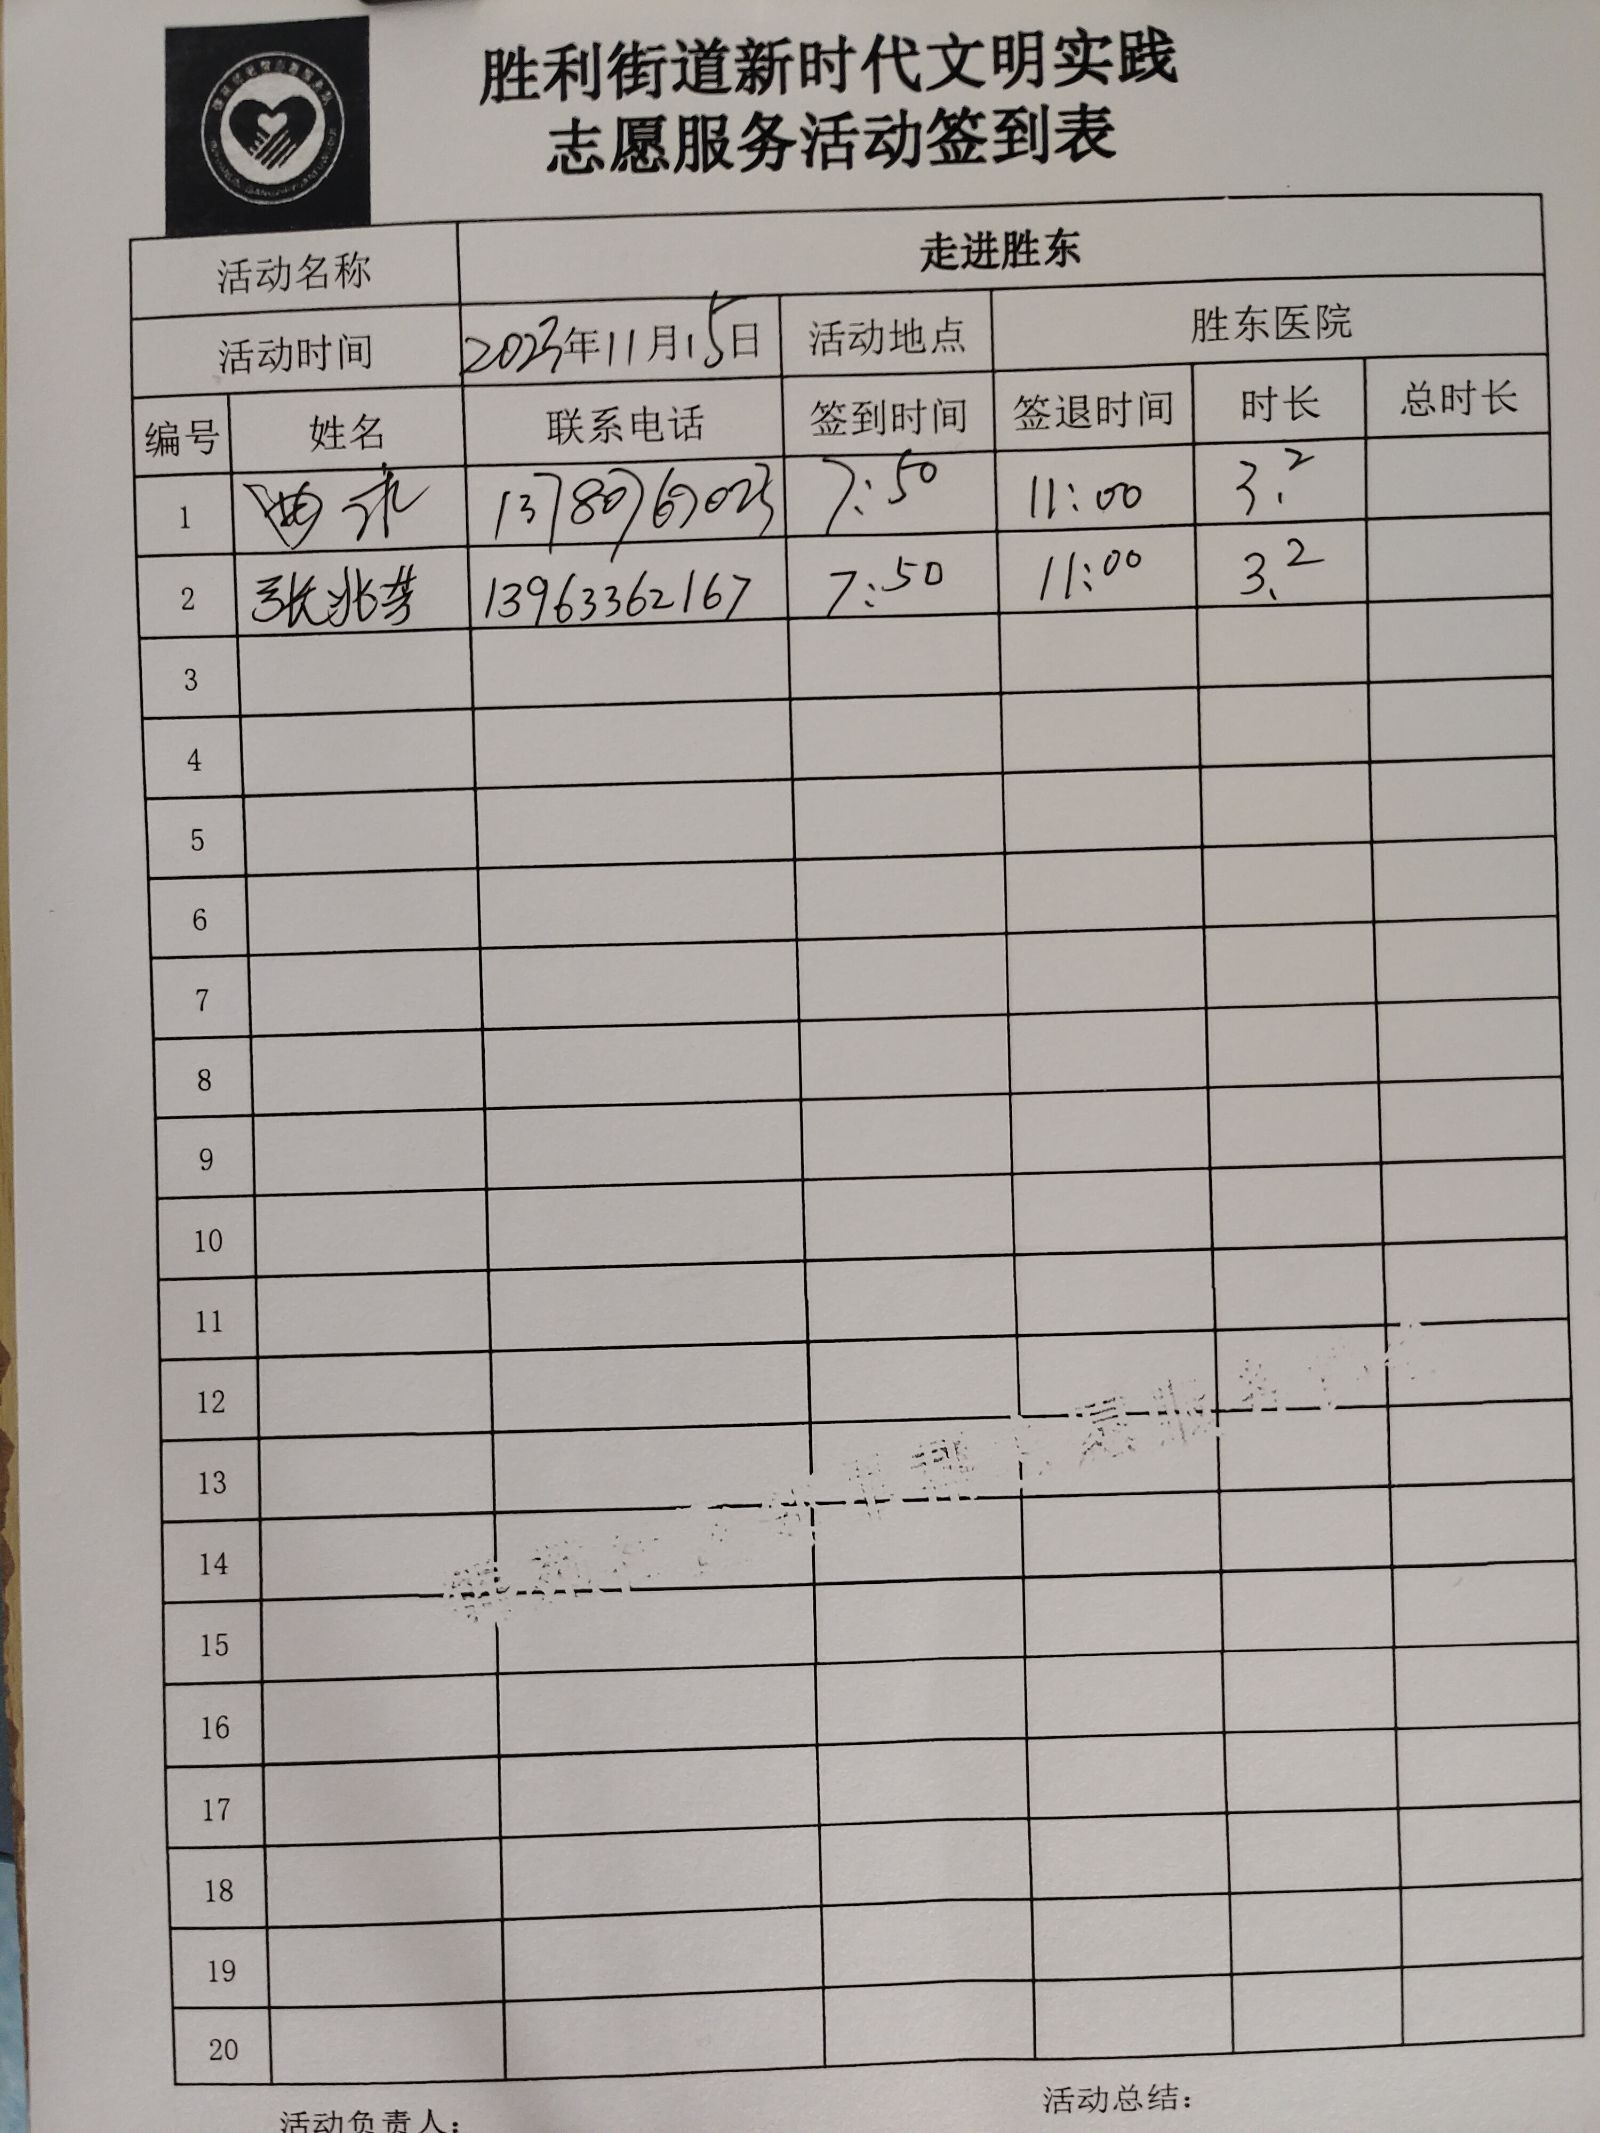 胜利街道新时代文明实践
志愿服务活动签到表
活动名称 走进胜东
活动时间 2023年11月15日 活动地点 胜东医院
编号 姓名 联系电话 签到时间 签退时间 时长 总时长
1 7:50 11:00 3.2
2 张兆芬 13963362167 7:50 11:00 3.2
3
4
5
6
7
8
9
10
11
12
13
14
15
16
17
18
19
20
活动负责人: 活动总结: